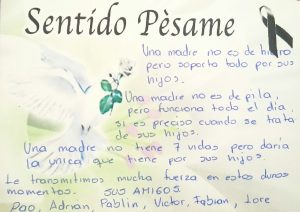 Sentido Pèsame
Una madre no es de hierro
pero soporta todo por sus
hijos.
Una madre no es de pila,
pero funciona todo el dia,
si es preciso cuando se trata
de sus hijos.
Una madre no tiene 7 vidas pero daría
la unica que tiene por sus hijos.
Le transmitimos mucha fuerza en estos duros
momentos. SUS AMIGOS.
Pao, Adrian, Pablin, Victor, Fabian, Lore